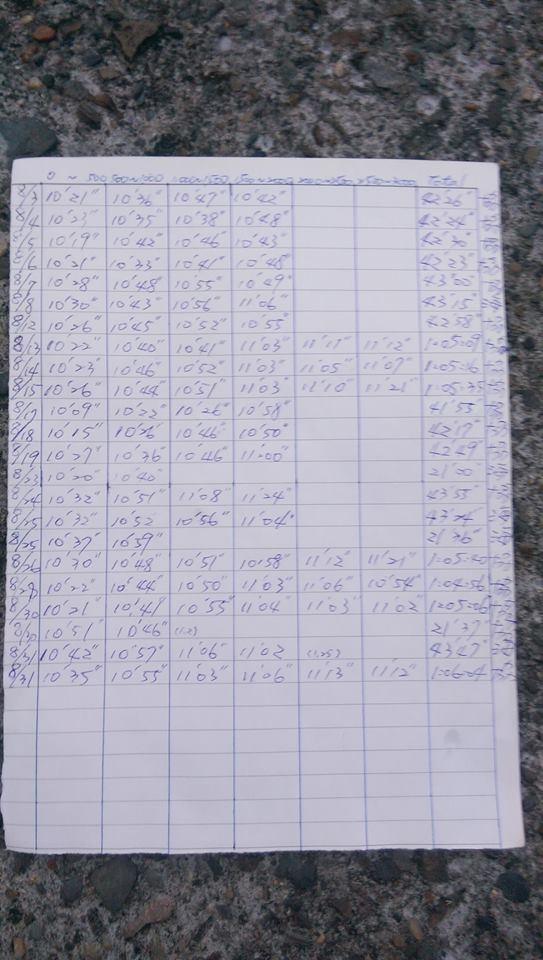 0 ~ 500 500~1000 1000~1500 1500~2000 2000~2500 2500~3000 Total
8/3 10'21" 10'36" 10'47" 10'42" 42'26"
8/4 10'23" 10'35" 10'38" 10'48" 42'24"
8/5 10'19" 10'42" 10'46" 10'43" 42'30"
8/6 10'21" 10'33" 10'41" 10'48" 42'23"
8/7 10'28" 10'48" 10'55" 10'49" 43'00"
8/8 10'30" 10'43" 10'56" 11'06" 43'15"
8/12 10'26" 10'45" 10'52" 10'55" 42'58"
8/13 10'22" 10'40" 10'41" 11'03" 11'12" 1:05:09
8/14 10'23" 10'46" 10'52" 11'03" 11'05" 11'07" 1:05:16
8/15 10'26" 10'44" 10'51" 11'03" 11'10" 11'21" 1:05:35
8/17 10'09" 10'23" 10'26" 10'58" 41'55"
8/18 10'15" 10'26" 10'46" 10'50" 42'17"
8/19 10'27" 10'36" 10'46" 11'00" 42'49"
8/23 10'20" 10'40" 21'00"
8/24 10'32" 10'51" 11'08" 11'24" 43'55"
8/25 10'32" 10'52 10'56" 11'04" 43'24"
8/25 10'37" 10'59" 21'36"
8/26 10'30" 10'48" 10'51" 10'58" 11'12" 11'21" 1:05:40
10'22" 10'44" 10'50" 11'03" 11'06" 10'54" 1:04:56
8/30 10'21" 10'41" 10'55" 11'04" 11'03" 11'02" 1:05:06
8/30 10'51" 10'46" 21'37"
8/31 10'42" 10'57" 11'06" 11'02 43'47"
8/31 10'35" 10'55" 11'03" 11'06" 11'13" 11'12" 1:06:04